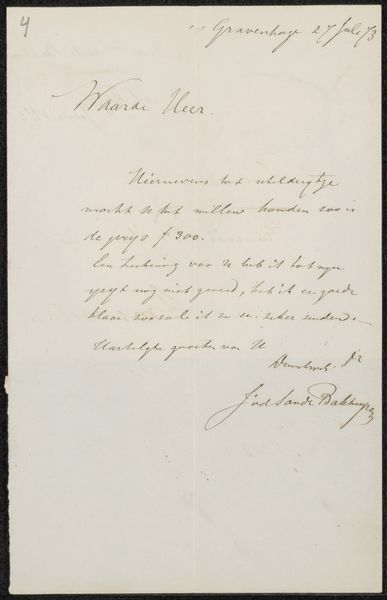 4
's Gravenhage 27 Juli 73
Waarde Heer.
Hiernevens het schilderytje
mocht U het willen houden zoo is
de prys f 300.
Een teekening voor U heb ik tot myn
spyt nog niet gereed, heb ik een goede
klaar zoo zal ik ze u zeker zenden.
Hartelyke groeten van U
Dienstw. Dr
J v d Sande Bakhuyzen